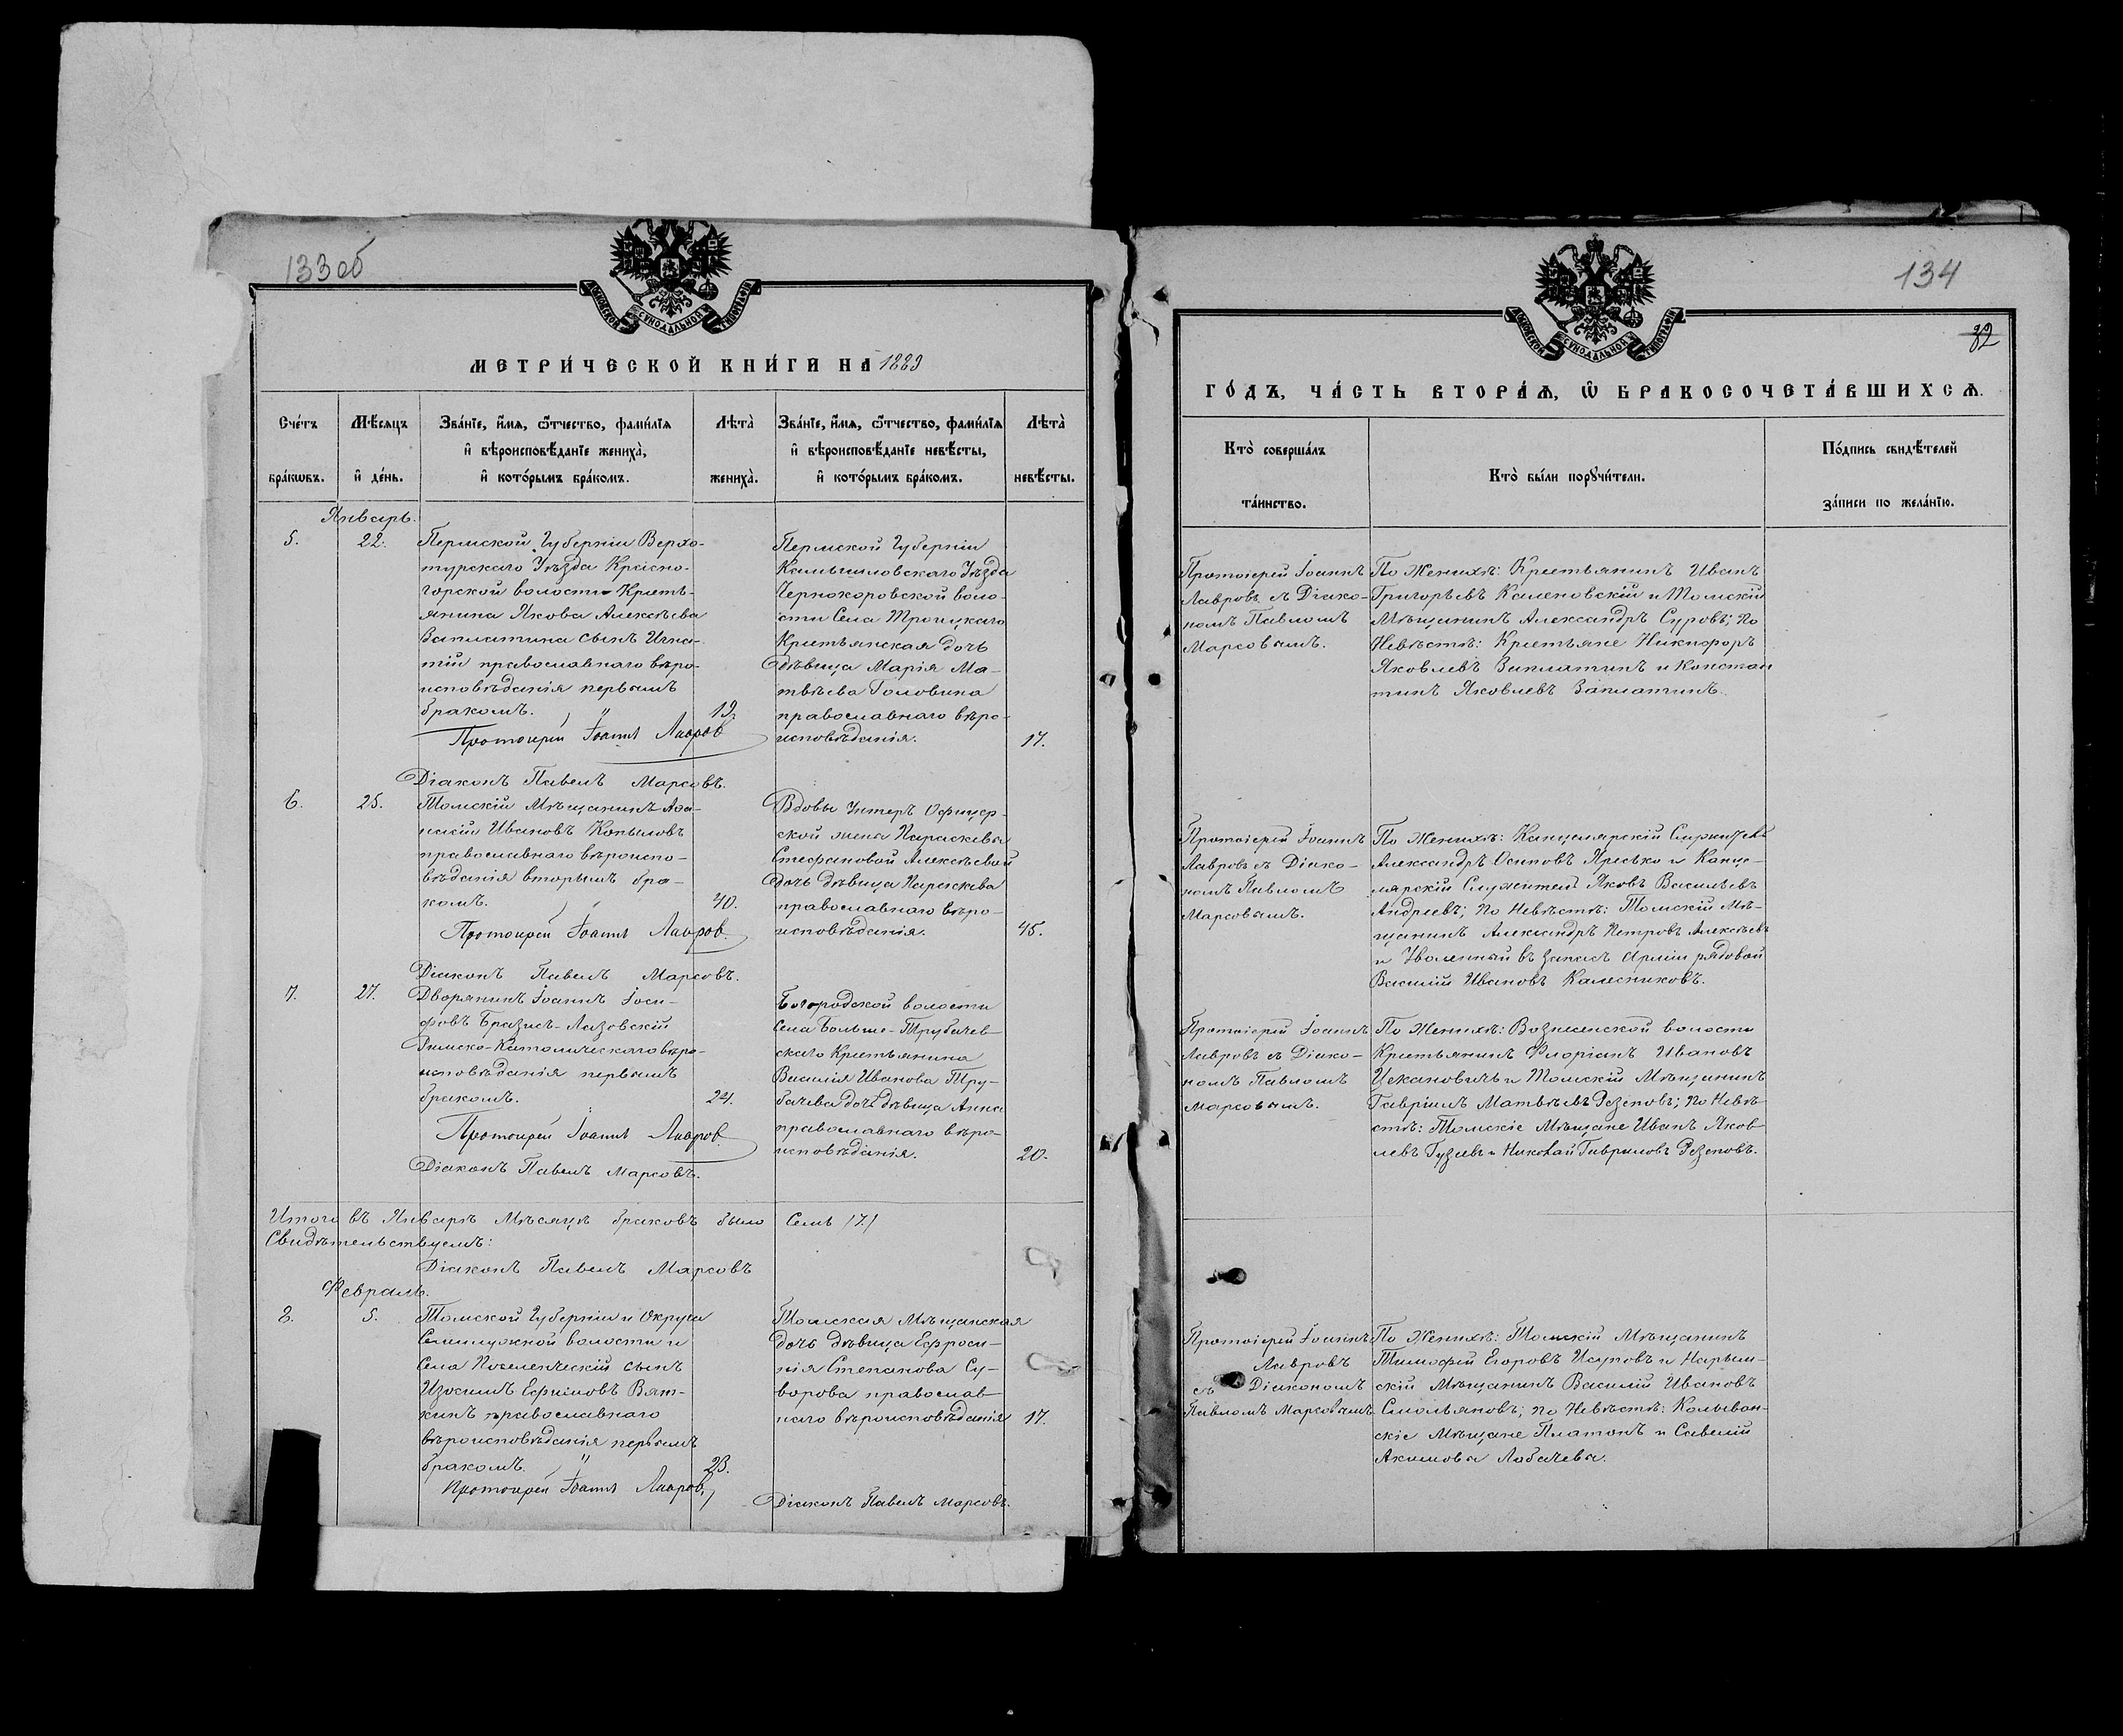 133 об
МОСКОВСКОЙ СѴНОДАЛЬНОЙ ТИПОГРАФІИ
МЕТРИ́ЧЕСКОЙ КНИ́ГИ НА 1889
Сче́тъ бра́кѡвъ.
Мѣ́сяцъ и҆ де́нь.
Зва́нїе, и҆́мѧ, ѻ҆́тчество, фами́лїѧ
и҆ вѣроисповѣ́данїе жениха̀,
и҆ кото́рымъ бра́комъ.
Лѣта̀ жениха̀.
Зва́нїе, и҆́мѧ, ѻ҆́тчество, фами́лїѧ
и҆ вѣроисповѣ́данїе невѣ́сты,
и҆ кото́рымъ бра́комъ.
Лѣта̀ невѣ́сты.
Январь.
5.
22.
Пермской Губерніи Верхо-
турскаго Уѣзда Красно-
горской волости Кресть-
янина Якова Алексѣева
Заплатина сынъ Игна-
тій православнаго вѣро-
исповѣданія первымъ
бракомъ.
19.
Протоіерей Іоаннъ Лавров
Діаконъ Павелъ Марсовъ.
Пермской Губерніи
Камышловскаго Уѣзда
Чернокоровской воло-
сти Села Троицкаго
Крестьянская дочь
дѣвица Марія Ма-
твѣева Головина
православнаго вѣро-
исповѣданія.
17.
6.
25.
Томскій Мѣщанинъ Аѳа-
насій Ивановъ Копыловъ
православнаго вѣроиспо-
вѣданія вторымъ бра-
комъ.
40.
Протоіерей Іоаннъ Лавров
Діаконъ Павелъ Марсовъ.
Вдовы Унтеръ Офицер-
ской жены Параскевы
Стефановой Алексѣевой
дочь дѣвица Параскева
православнаго вѣро-
исповѣданія.
45.
7.
27.
Дворянинъ Іоаннъ Іоси-
фовъ Бразис-Лазовскій
Римско-Католическаго вѣро-
исповѣданія первымъ
бракомъ.
24.
Протоіерей Іоаннъ Лавров
Діаконъ Павелъ Марсовъ.
Богородской волости
Села Больше-Трубачев-
скаго Крестьянина
Василія Иванова Тру-
бачева дочь дѣвица Анна
православнаго вѣро-
исповѣданія.
20.
Итого въ Январѣ Мѣсяцѣ браковъ было Семь /7/
Свидѣтельствуемъ:
Діаконъ Павелъ Марсовъ
Февраль.
8.
5.
Томской Губерніи и Округа
Семилужной волости и
Села Поселенческій сынъ
Изосимъ Ефимовъ Вят-
кинъ православнаго
вѣроисповѣданія первымъ
бракомъ.
23.
Протоіерей Іоаннъ Лавров
Томская Мѣщанская
дочь дѣвица Ефроси-
нія Степанова Су-
ворова православ-
наго вѣроисповѣданія
17.
Діаконъ Павелъ Марсовъ.
134
32
МОСКОВСКОЙ СѴНОДАЛЬНОЙ ТИПОГРАФІИ
ГО́ДЪ, ЧА́СТЬ ВТОРА́Ѧ, Ѽ БРАКОСОЧЕТА́ВШИХСѦ.
Кто̀ соверша́лъ та́инство.
Кто̀ бы́ли порꙋчи́тели.
По́дпись свидѣ́телей
за́писи по жела́нїю.
Протоіерей Іоаннъ
Лавровъ съ Діако-
номъ Павломъ
Марсовымъ.
По Женихѣ: Крестьянинъ Иванъ
Григорьевъ Каленовскій и Томскій
Мѣщанинъ Александръ Суровъ; по
Невѣстѣ: Крестьяне Никифоръ
Яковлевъ Заплатинъ и Констан
тинъ Яковлевъ Заплатинъ.
Протоіерей Іоаннъ
Лавровъ съ Діако-
номъ Павломъ
Марсовымъ.
По Женихѣ: Канцелярскій Служитель
Александръ Осиповъ Яресько и Канце-
лярскій Служитель Яковъ Васильевъ
Андреевъ; по Невѣстѣ: Томскій Мѣ-
щанинъ Александръ Петровъ Алексѣевъ
и Уволенный въ запасъ Арміи рядовой
Василій Ивановъ Калесниковъ.
Протоіерей Іоаннъ
Лавровъ съ Діако-
номъ Павломъ
Марсовымъ.
По Женихѣ: Вознесенской волости
Крестьянинъ Флоріанъ Ивановъ
Цехановичъ и Томскій Мѣщанинъ
Гавріилъ Матвѣевъ Резеповъ; по Невѣ-
стѣ: Томскіе Мѣщане Иванъ Яков
левъ Гузѣевъ и Николай Гавриловъ Резеповъ.
Протоіерей Іоаннъ
Лавровъ
съ Діакономъ
Павломъ Марсовымъ.
По Женихѣ: Томскій Мѣщанинъ
Тимофей Егоровъ Исуповъ и Нарым-
скій Мѣщанинъ Василій Ивановъ
Смольяновъ; по Невѣстѣ: Колыван-
скіе Мѣщане Платонъ и Савелій
Акимовы Лобачевы.